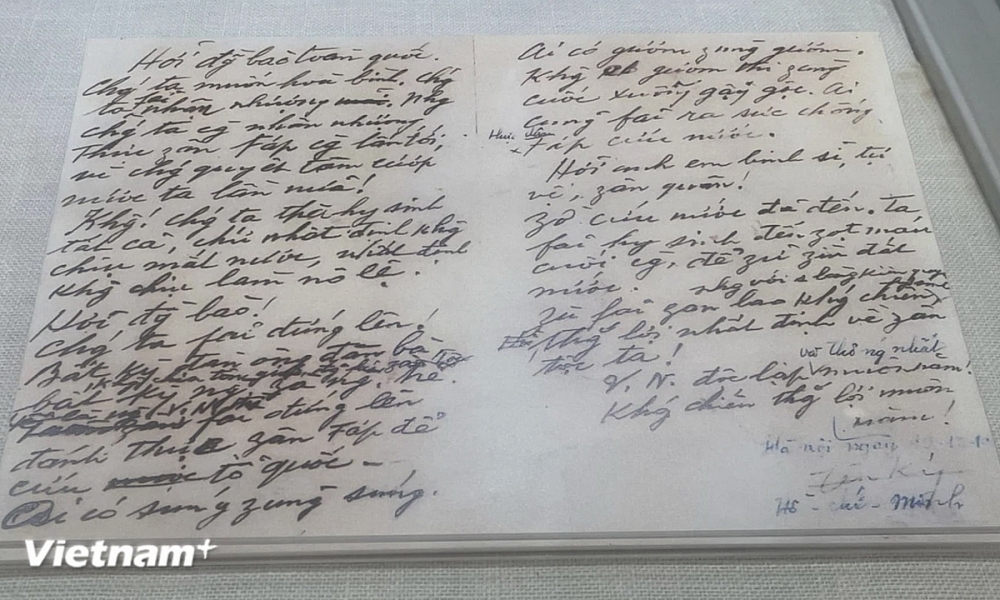 Hỡi đg bào toàn quốc.
Chg ta muốn hoà bình. Chg
ta fải nhân nhượng. Nhg
chg ta cg nhân nhượng,
thực zân Fáp cg lấn tới,
vì chg quyết tâm cướp
nước ta lần nữa!
Khg! Chg ta thà hy sinh
tất cả, chứ nhất định khg
chịu mất nước, nhất định
khg chịu làm nô lệ.
Hỡi đg bào!
Chg ta fải đứng lên!
Bất kỳ đàn ông đàn bà
bất kỳ người già người trẻ.
fải đứng lên
đánh thực zân Fáp để
cứu nước tổ quốc -
Ai có súng zùng súng.
Ai có gươm zùng gươm.
Khg có gươm thì zùng
cuốc xuổng gậy gộc. Ai
cũng fải ra sức chống
thực zân
Fáp cứu nước.
Hỡi anh em binh sĩ, tự
vệ, zân quân!
Zờ cứu nước đã đến. Ta
fải hy sinh đến zọt máu
cuối cg, để zữ zìn đất
nước.
Zù fải zan lao khg chiến
thg lợi nhất định về zân
tộc ta!
và thống nhất
V. N. độc lập muôn năm!
Khg chiến thg lợi muôn
năm!
Hà nội ngày
Hồ - chí - Minh
Vietnam+